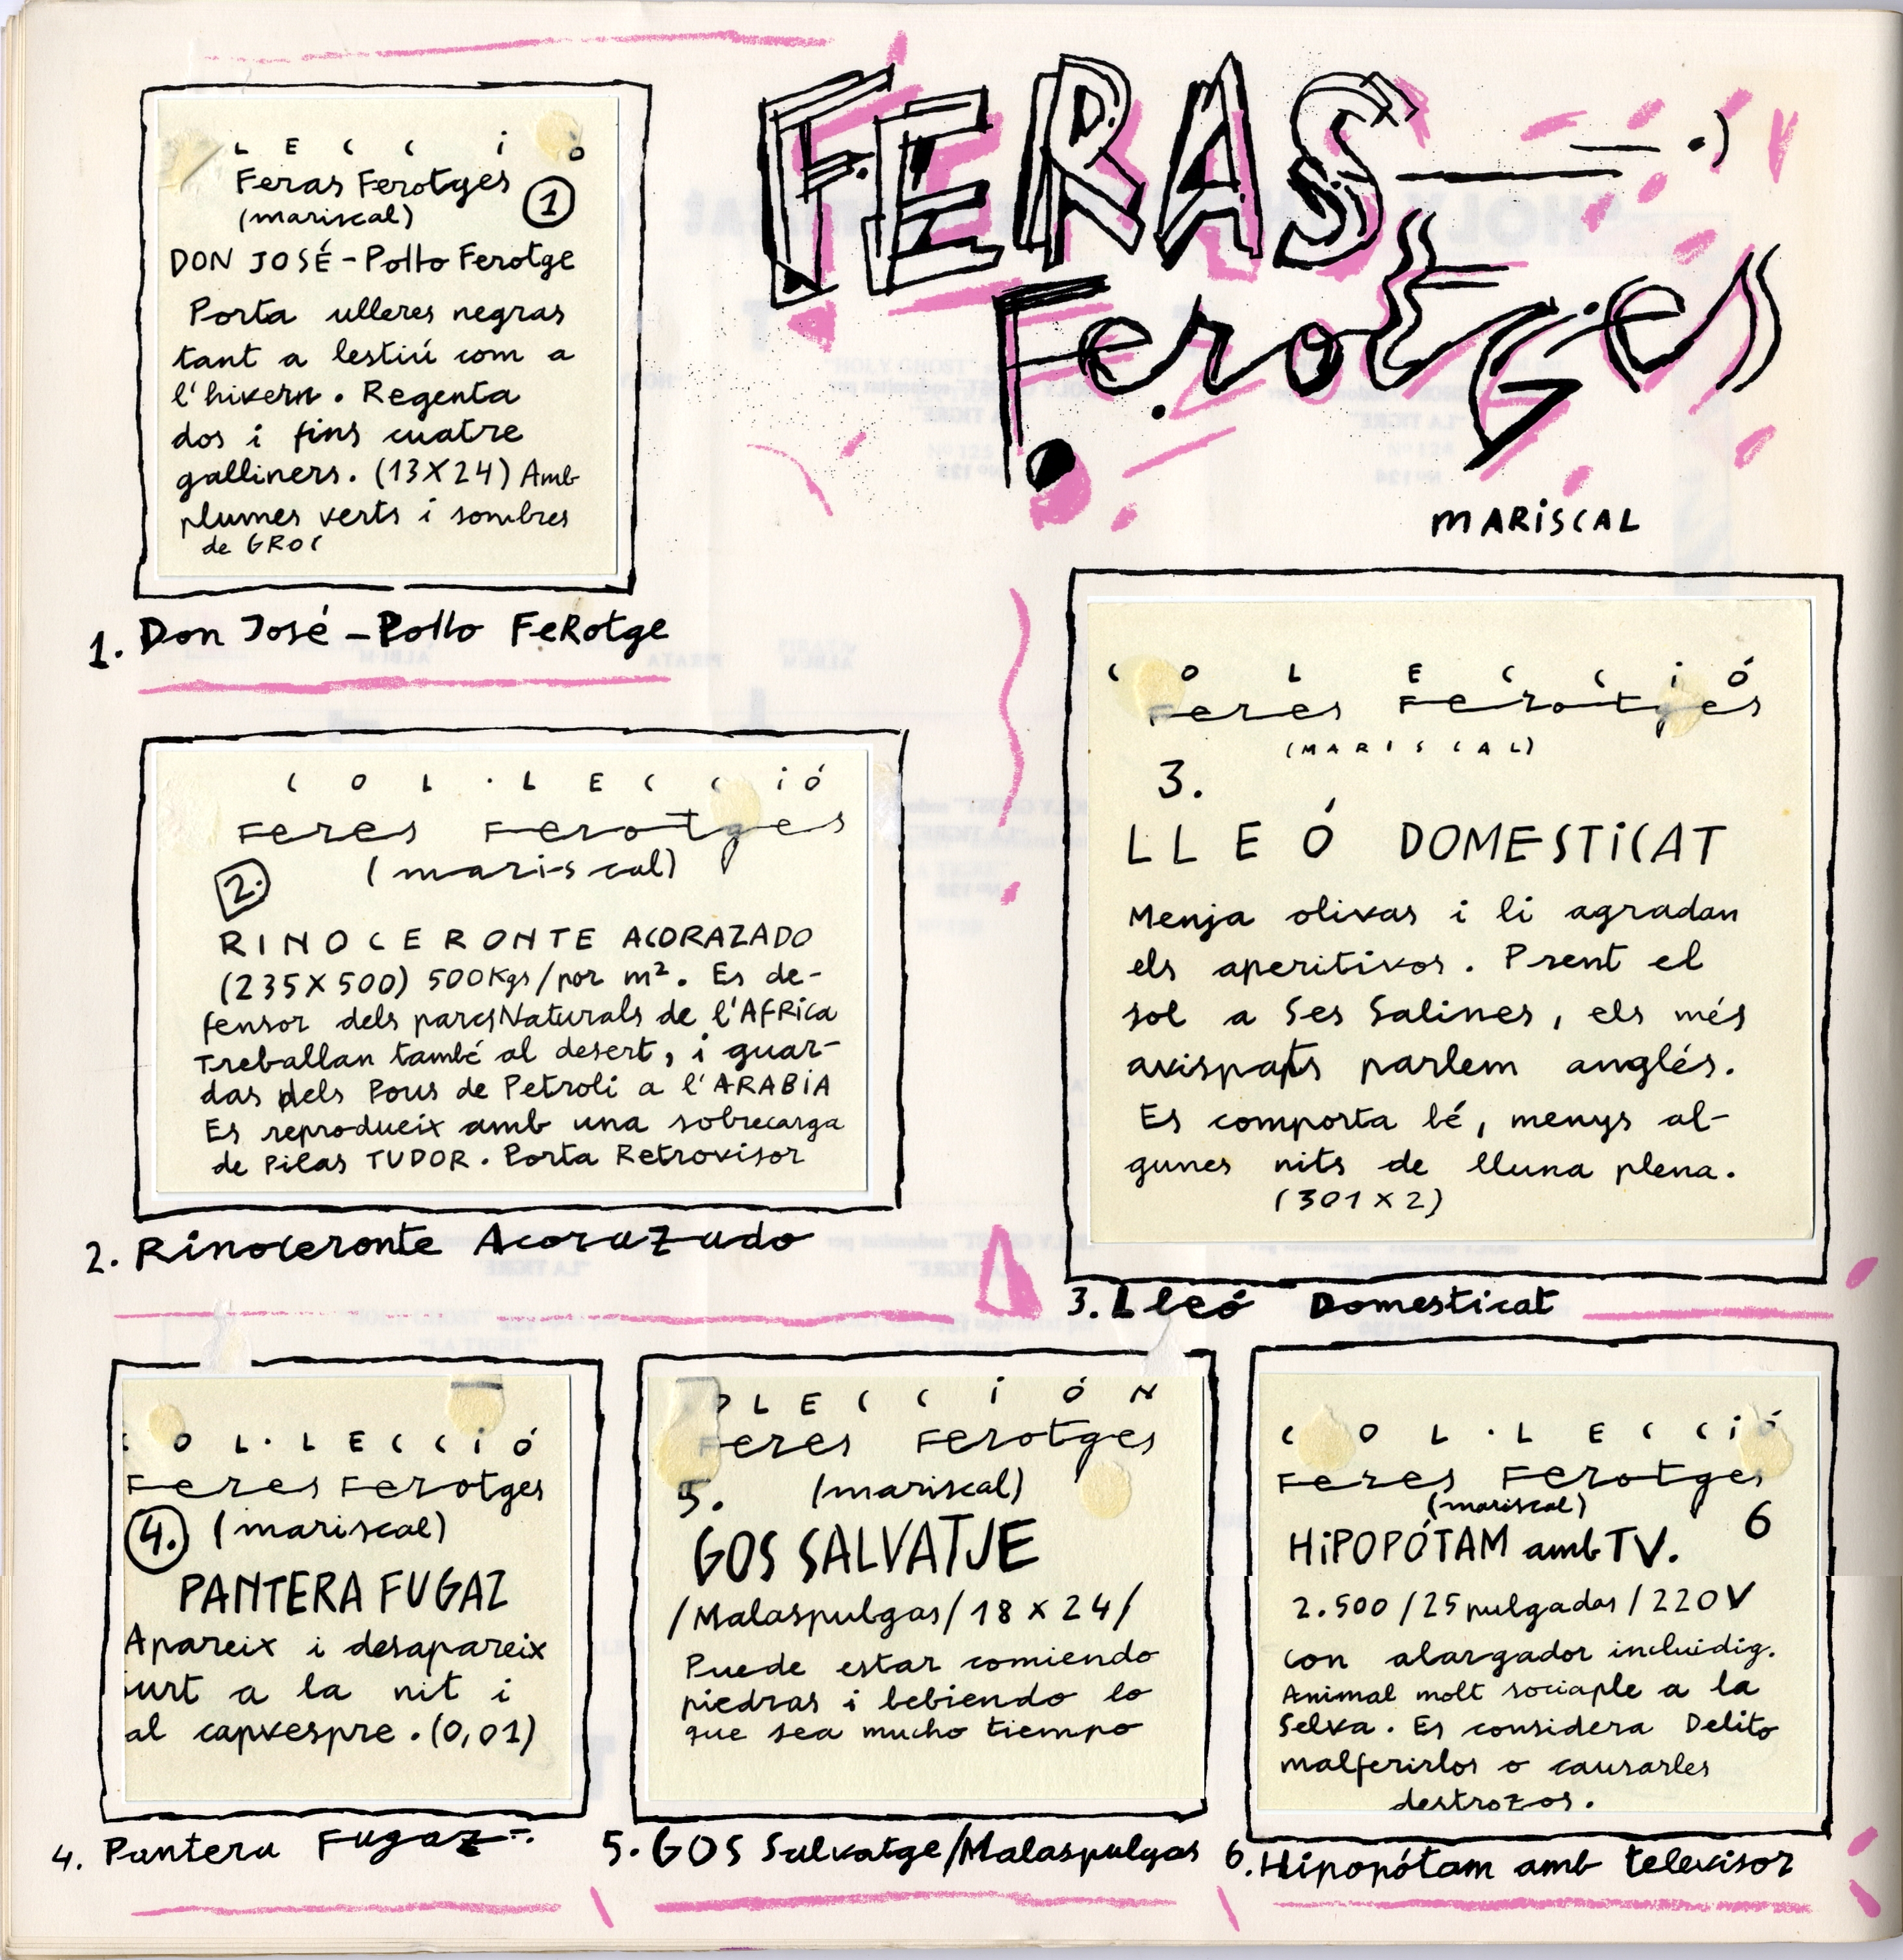 FERAS
Ferotges
MARISCAL
LECCió
Feras Ferotges
(mariscal)
1
DON JOSÉ - Pollo Ferotge
Porta ulleres negras
tant a lestiú com a
l'hivern. Regenta
dos i fins cuatre
galliners. (13X24) Amb
plumes verts i sombres
de GROC
1. Don José - Pollo FeRotge
COL·LECCió
Feres Ferotges
2.
(mariscal)
RINOCERONTE ACORAZADO
(235X500) 500Kgs/por m². Es de-
fensor dels parcs Naturals de l'AFRica
Treballan també al desert, i guar-
das dels Pous de Petroli a l'ARABIA
Es reprodueix amb una sobrecarga
de Pilas TUDOR. Porta Retrovisor
2. Rinoceronte Acorazado
COLECCió
Feres Ferotges
(MARISCAL)
3.
LLEÓ DOMESTiCAT
Menja olivas i li agradan
els aperitivos. Prent el
sol a Ses Salines, els més
avispats parlem anglés.
Es comporta bé, menys al-
gunes nits de lluna plena.
(301X2)
3. Lleó Domesticat
OL·LECCió
Feres Ferotges
4. (mariscal)
PANTERA FUGAZ
Apareix i desapareix
surt a la nit i
al capvespre. (0,01)
4. Pantera Fugaz
OLECCiÓN
Feres Ferotges
5. (mariscal)
GOS SALVATJE
/Malaspulgas/18x24/
Puede estar comiendo
piedras i bebiendo lo
que sea mucho tiempo
5. GOS Salvatge/Malaspulgas
COL·LECCió
Feres Ferotges
(mariscal)
6
HiPOPÓTAM amb TV.
2.500/25 pulgadas/220V
con alargador incluidig.
Animal molt sociaple a la
Selva. Es considera Delito
malferirlos o causarles
destrozos.
6. Hipopótam amb televisor